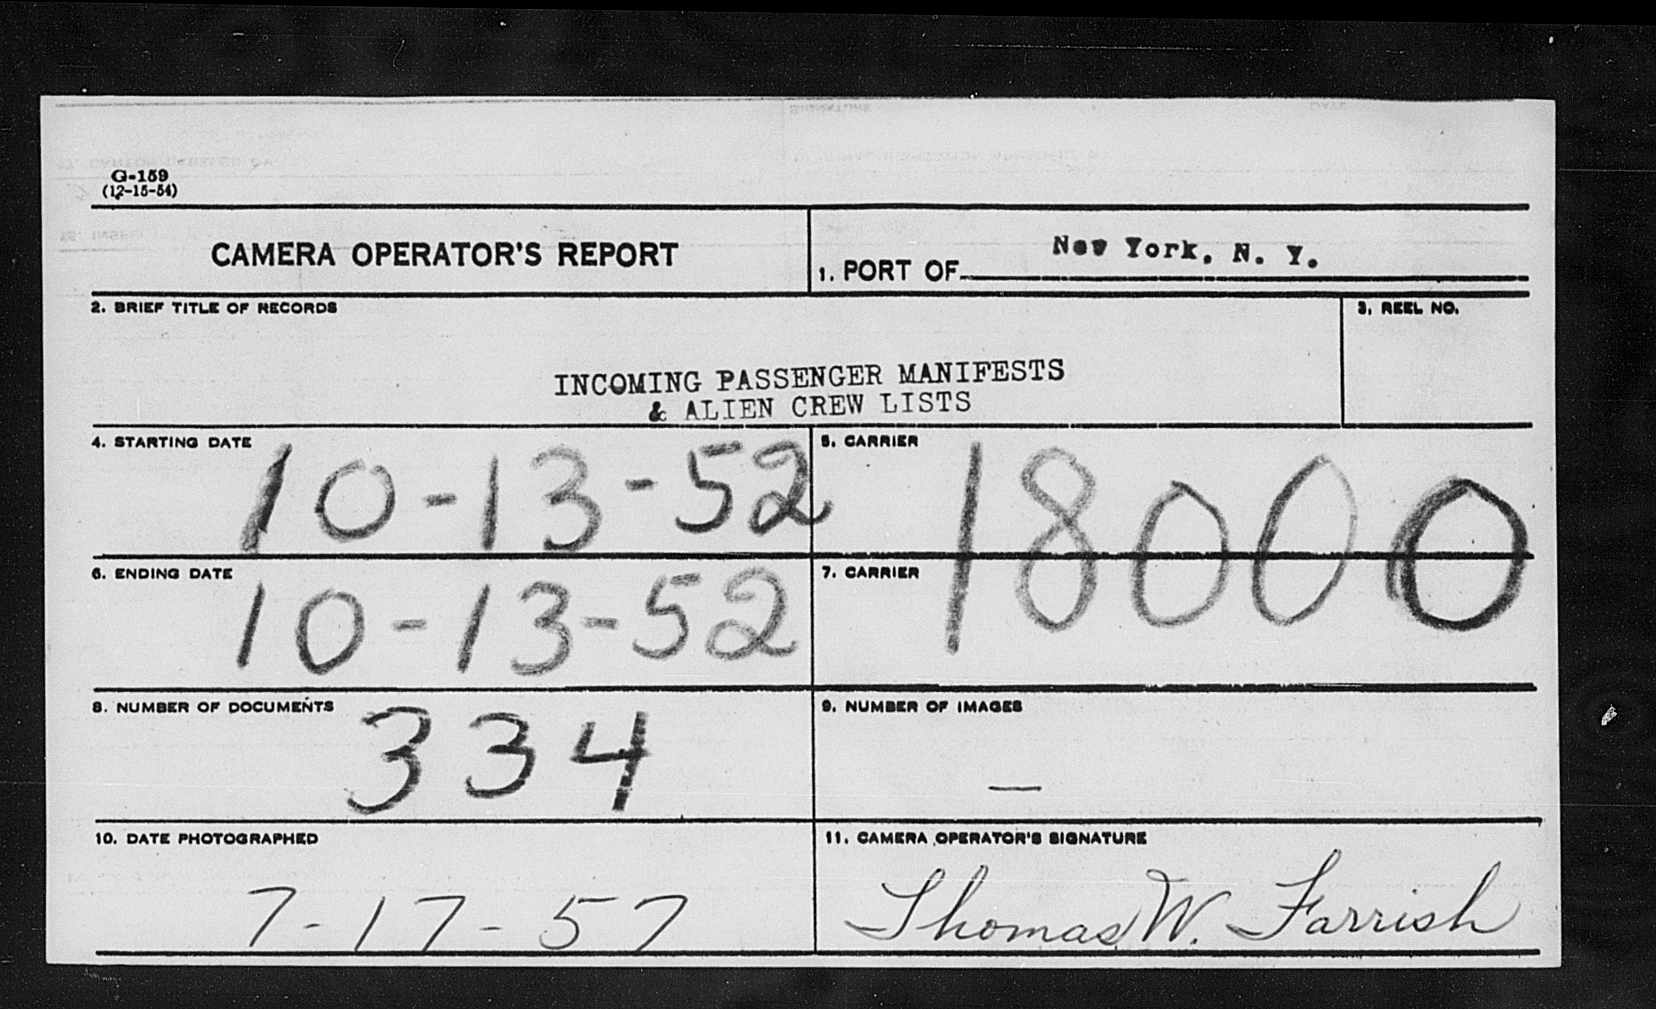 G-159
(12-15-54)
CAMERA OPERATOR'S REPORT
1. PORT OF New York, N. Y.
2. BRIEF TITLE OF RECORDS
3. REEL NO.
INCOMING PASSENGER MANIFESTS
& ALIEN CREW LISTS
4. STARTING DATE
10-13-52
5. CARRIER
18000
6. ENDING DATE
10-13-52
7. CARRIER
8. NUMBER OF DOCUMENTS
334
9. NUMBER OF IMAGES
—
10. DATE PHOTOGRAPHED
7-17-57
11. CAMERA OPERATOR'S SIGNATURE
Thomas W. Farrish